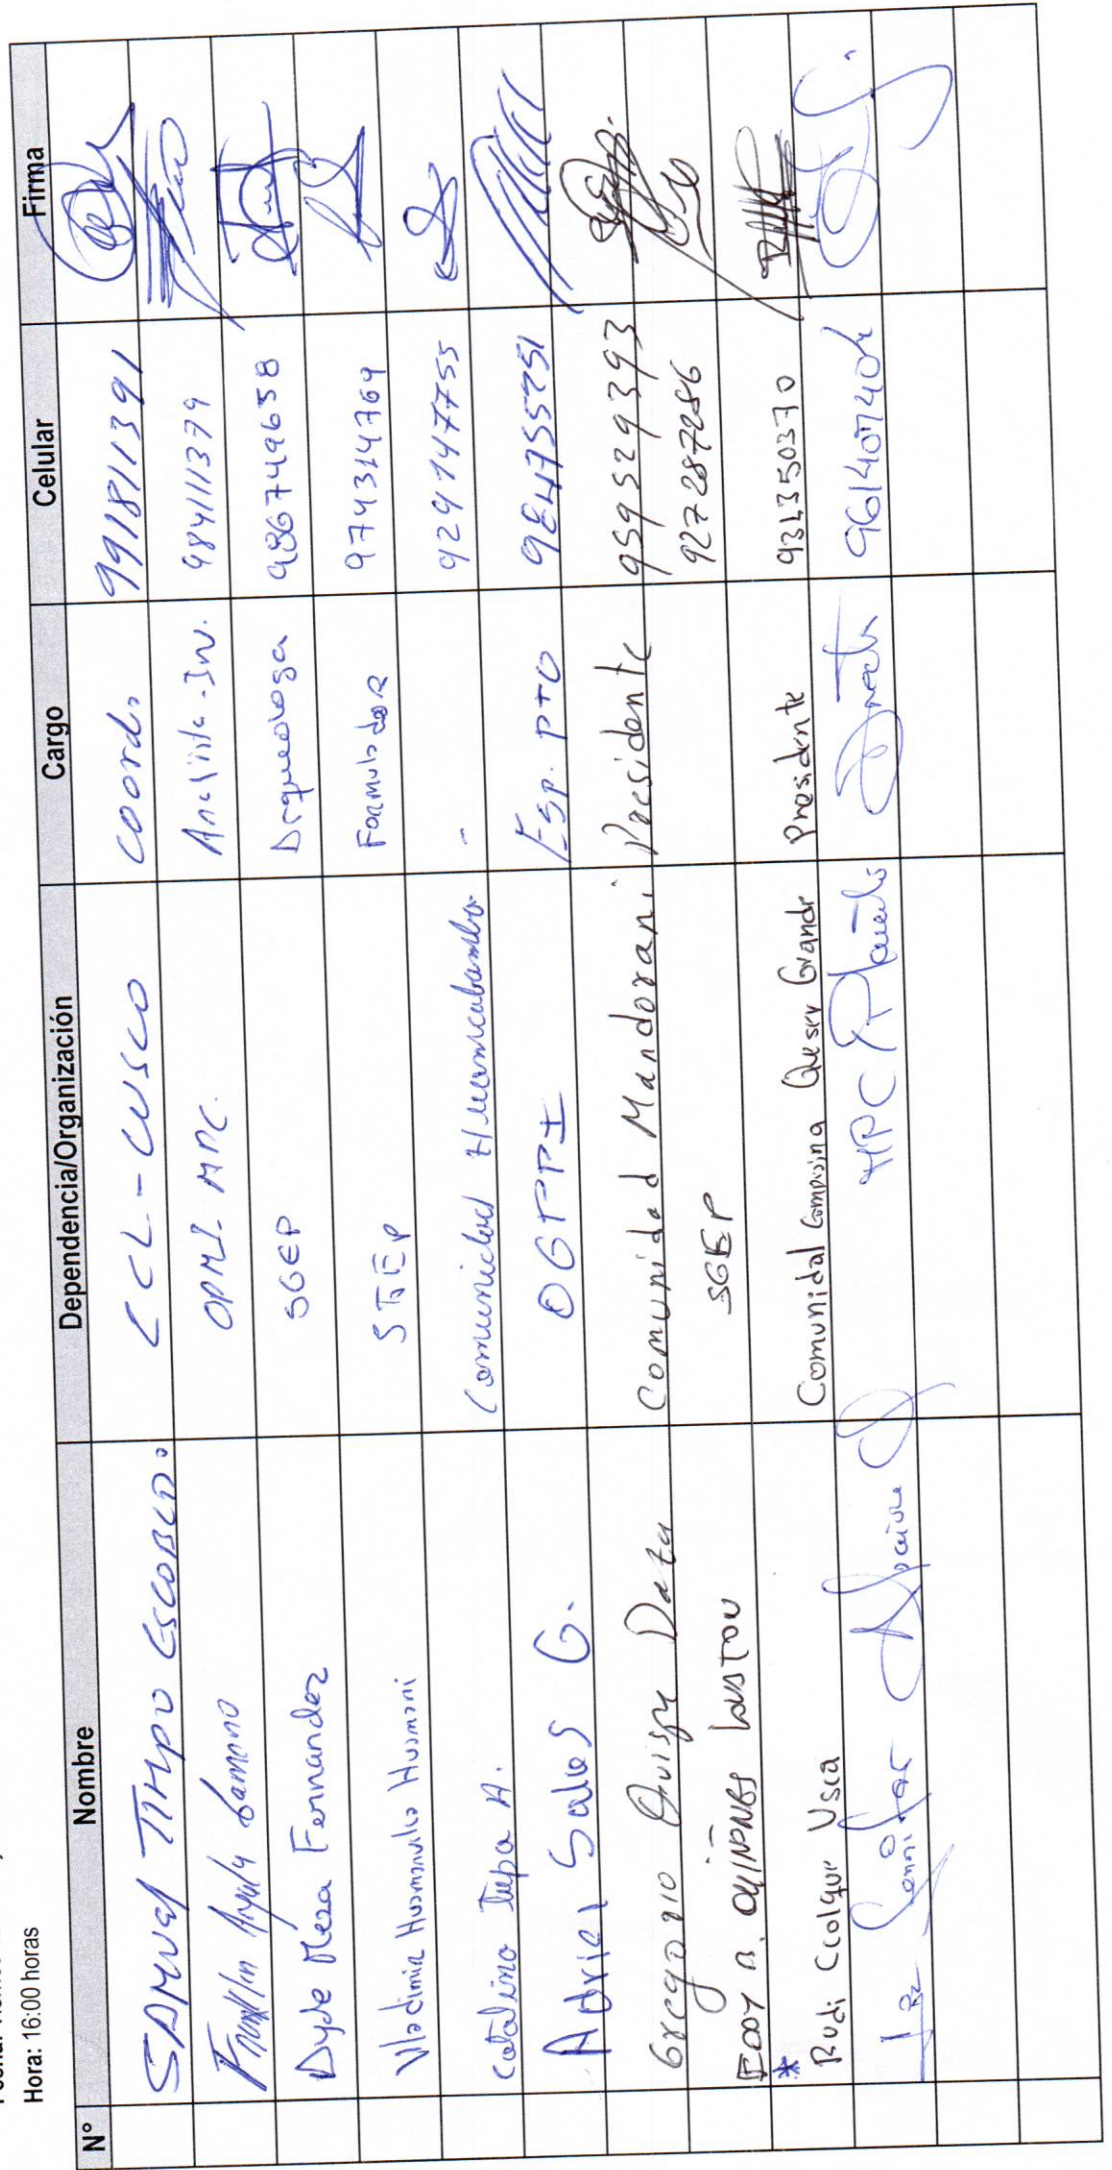 Hora: 16:00 horas
N° Nombre Dependencia/Organización Cargo Celular Firma
SAMUEL TIMPO ESCOBEDO. CCL - CUSCO coord. 991811391
Franklin OPMI. MPC. Analista - Inv. 984111379
Dyde Meza Fernandez SGEP Arqueologa 986749658
Wladimir Huamanvilo Huamani SGEP Formulador 974314764
Catalino Tupa A. Comunidad Huamcabamba - 929147755
Adriel Salas G. OGPPI Esp. PTO 984755751
Gregorio Quispe Data Comunidad Mandorani Presidente 959529393
EDDY SGEP 927287286
* Rudi Ccolque Usca Comunidal Campisina Queser Grande Presidente 931350370
Luz MPC 961407404